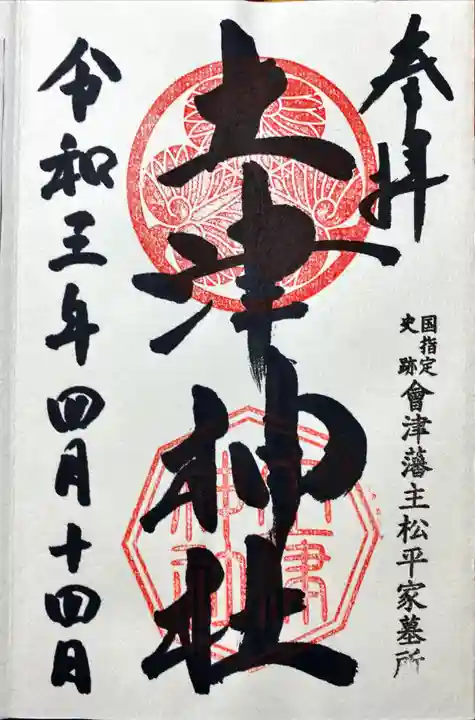 奉拝
国指定
史跡
會津藩主松平家墓所
土津神社
土津
神社
令和三年四月十四日